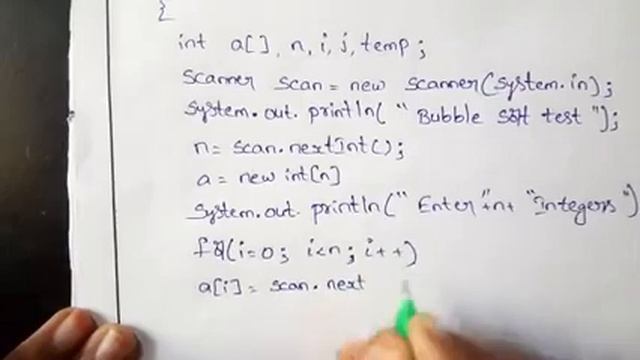 {
int a[], n, i, j, temp;
Scanner scan = new scanner(System.in);
System.out.println("Bubble sort test");
n = scan.nextInt();
a = new int[n]
System.out.println("Enter"+n+ "Integers")
for(i=0; i<n; i++)
a[i] = scan.next